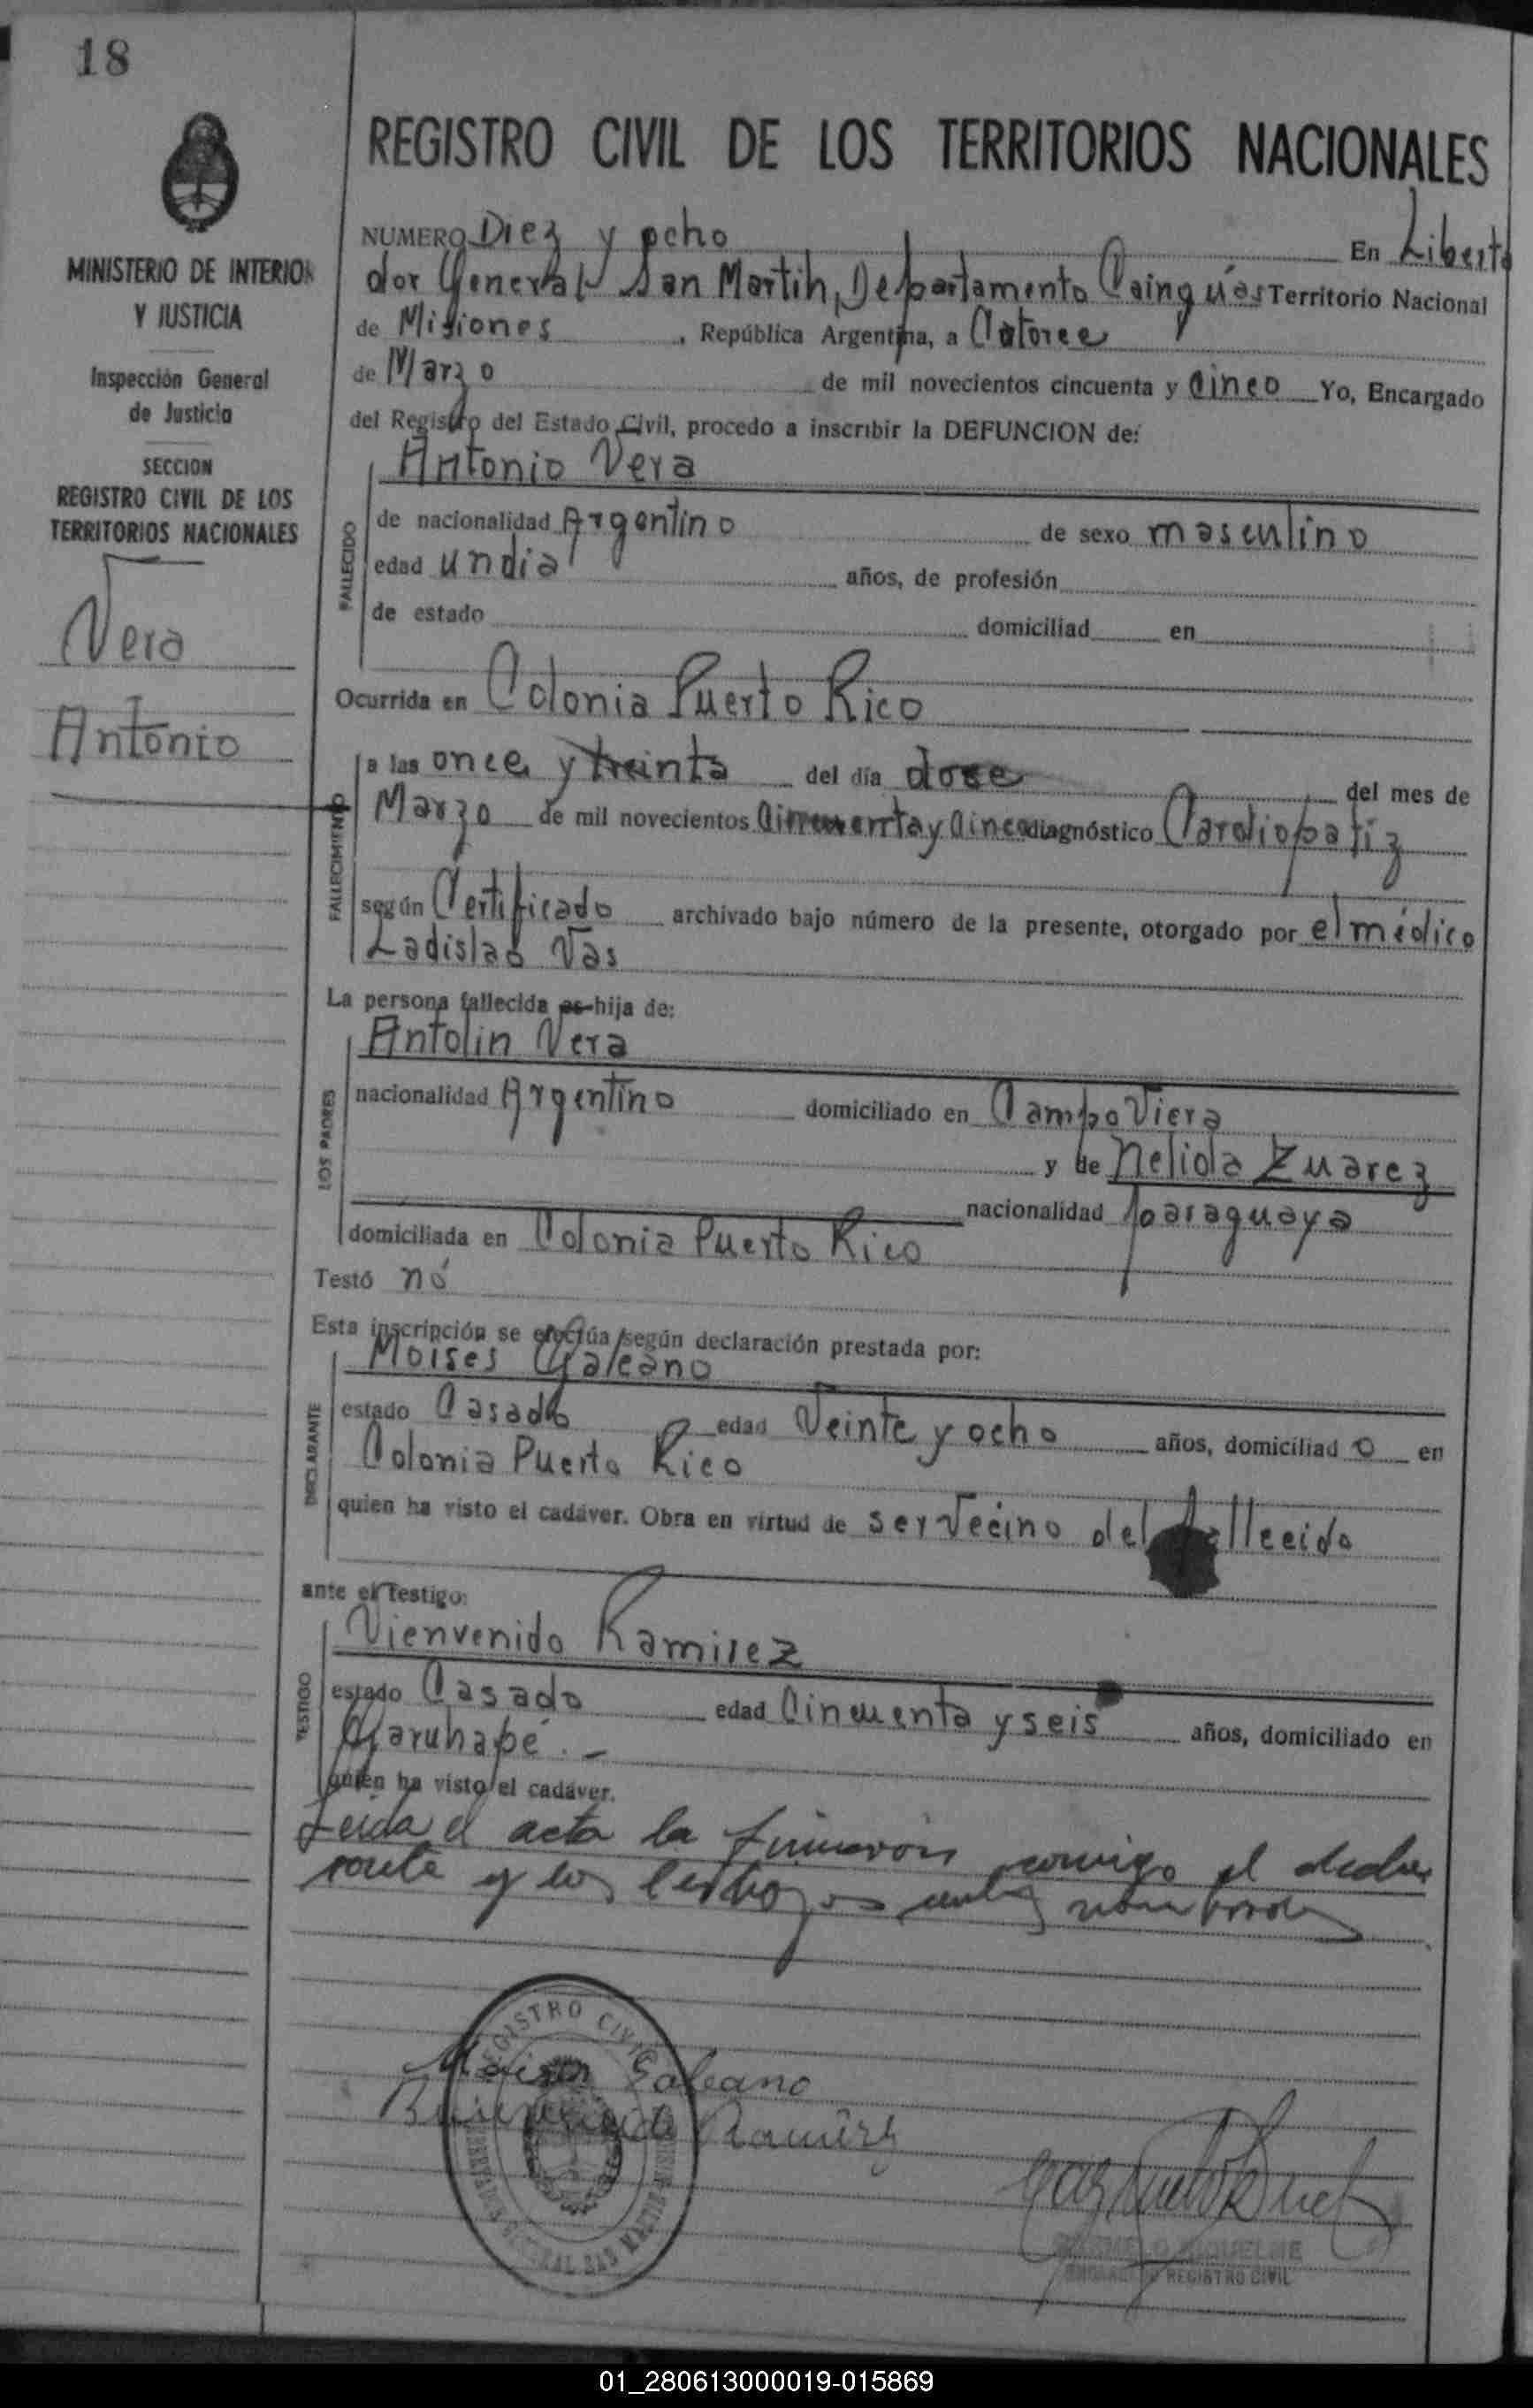 18
MINISTERIO DE INTERIOR
Y JUSTICIA
Inspección General
de Justicia
SECCION
REGISTRO CIVIL DE LOS
TERRITORIOS NACIONALES
Vera
Antonio
REGISTRO CIVIL DE LOS TERRITORIOS NACIONALES
NUMERO Diez y ocho En Liberta
dor General San Martin, Departamento Cainguás Territorio Nacional
de Misiones, República Argentina, a Catorce
de Marzo de mil novecientos cincuenta y Cinco Yo, Encargado
del Registro del Estado Civil, procedo a inscribir la DEFUNCION de:
Antonio Vera
FALLECIDO
de nacionalidad Argentino de sexo masculino
edad un dia años, de profesión
de estado domiciliad en
Ocurrida en Colonia Puerto Rico
FALLECIMIENTO
a las once y treinta del día doce del mes de
Marzo de mil novecientos Cincuenta y Cinco diagnóstico Cardiopatiz
según Certificado archivado bajo número de la presente, otorgado por el médico
Ladislao Vas
La persona fallecida es hija de:
LOS PADRES
Antolin Vera
nacionalidad Argentino domiciliado en Campo Viera
y de Nelida Zuarez
nacionalidad paraguaya
domiciliada en Colonia Puerto Rico
Testó nó
Esta inscripción se efectúa según declaración prestada por:
DECLARANTE
Moises Galeano
estado Casado edad Veinte y ocho años, domiciliad o en
Colonia Puerto Rico
quien ha visto el cadáver. Obra en virtud de ser Vecino del fallecido
ante el testigo:
TESTIGO
Vienvenido Ramirez
estado Casado edad Cincuenta y seis años, domiciliado en
Garuhapé.-
quien ha visto el cadáver.
Leida el acta la firmaron conmigo el decla
rante y los testigos antes nombrados
REGISTRO CIVIL
LIBERTADOR GENERAL SAN MARTIN
Moises Galeano
Bienvenido Ramirez
CARMELO RIQUELME
ENCARGADO REGISTRO CIVIL
01_280613000019-015869